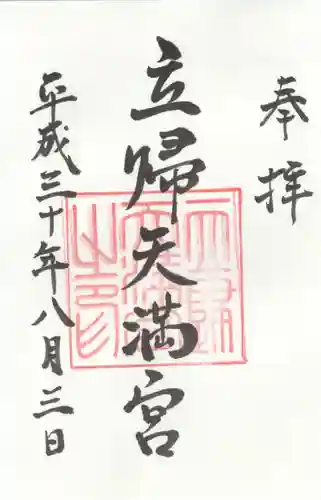 奉拝
立帰天満宮
平成三十年八月三日